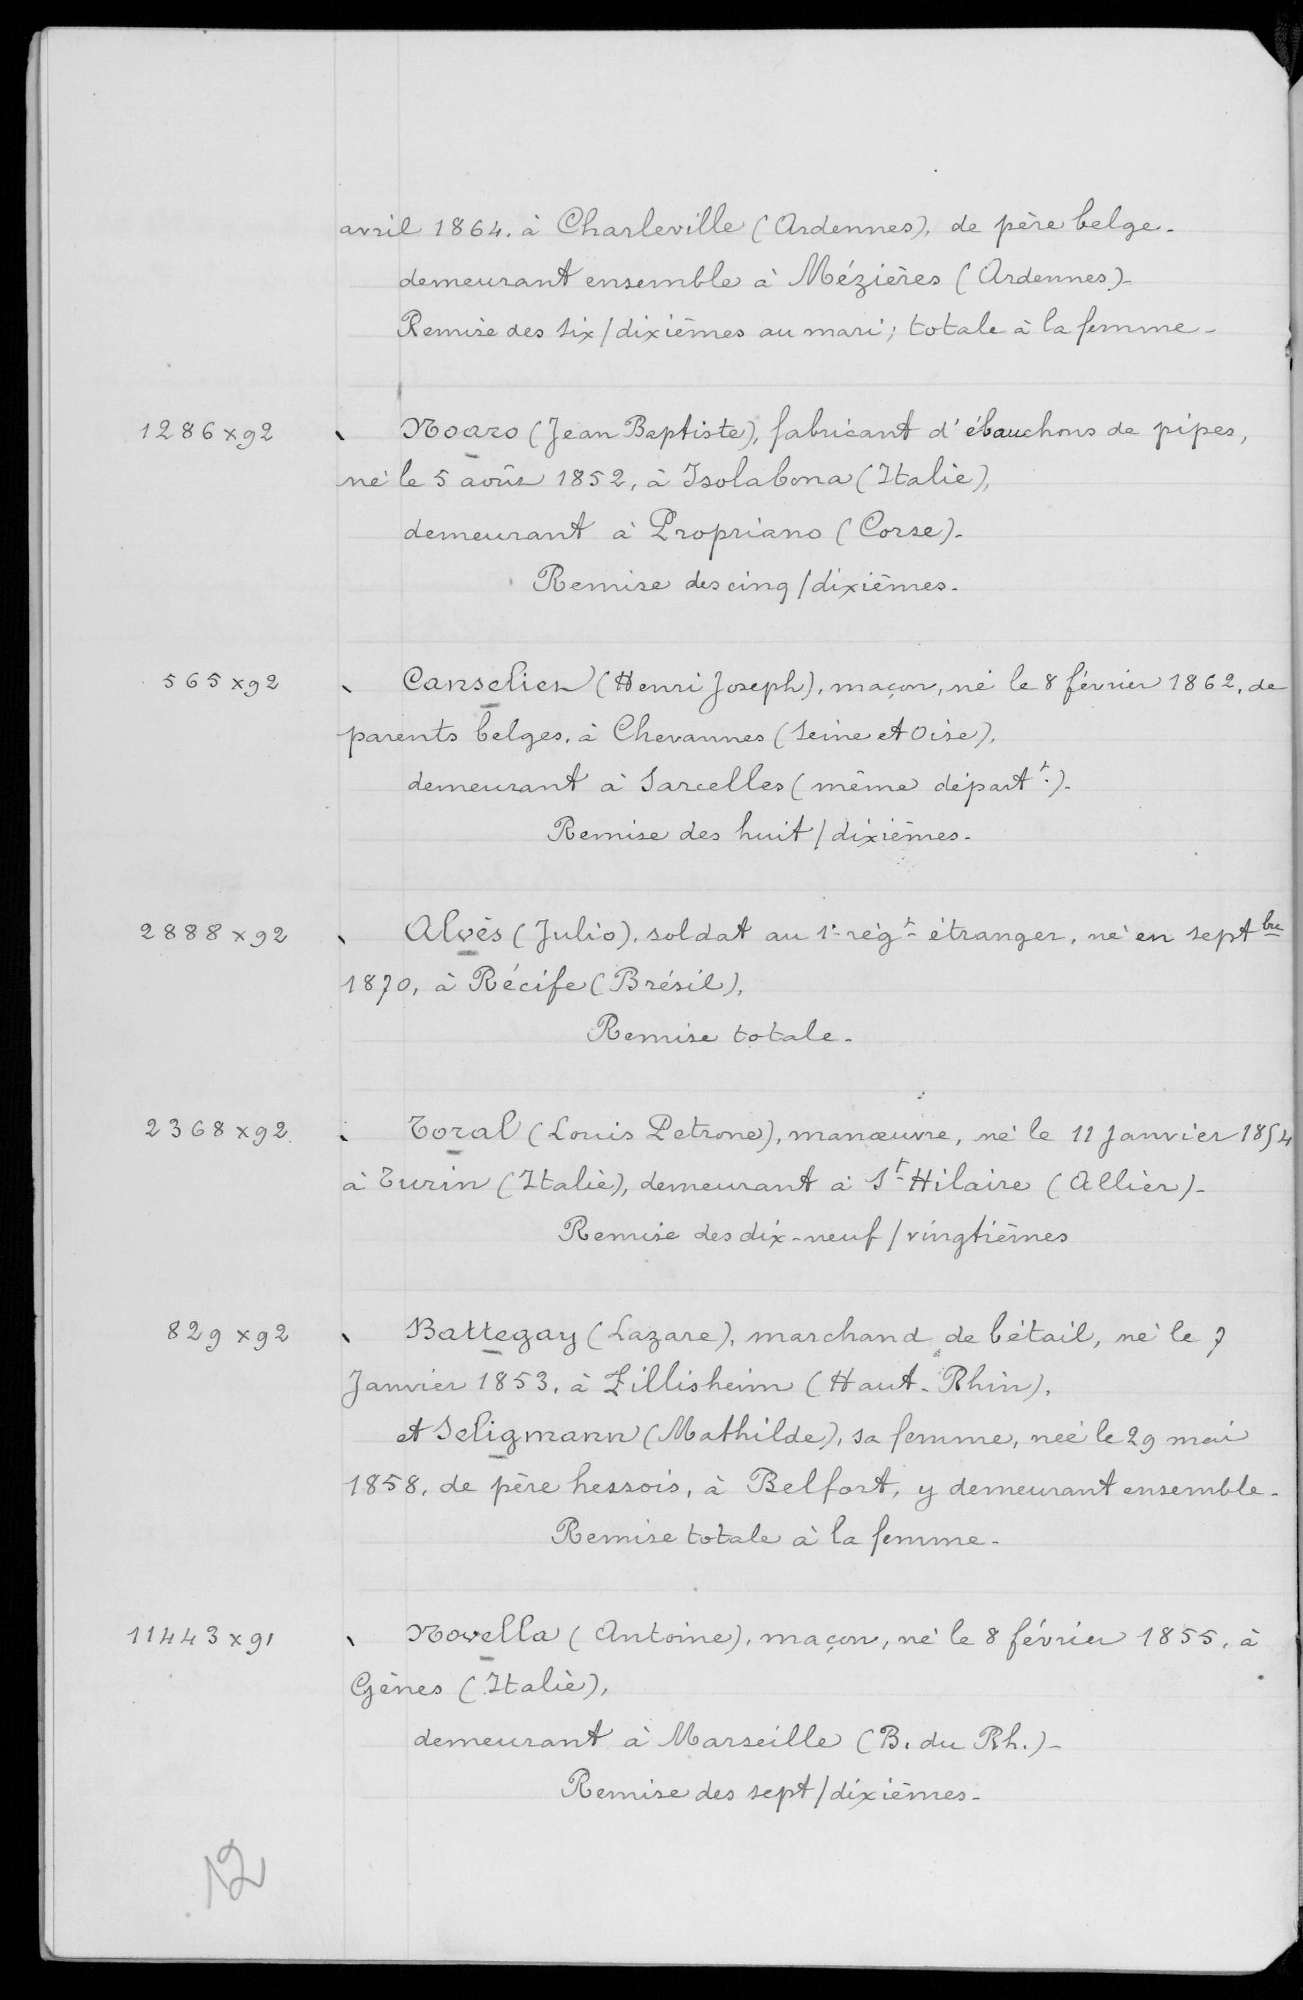 avril 1864. à Charleville (Ardennes), de père belge.
demeurant ensemble à Mézières (Ardennes)-
Remise des six/dixièmes au mari; totale à la femme-
1286 x 92 Noaro (Jean Baptiste), fabricant d'ébauchons de pipes,
né le 5 août 1852, à Isolabona (Italie),
demeurant à Propriano (Corse)-
Remise des cinq/dixièmes-
565 x 92 Canselier (Henri Joseph), maçon, né le 8 février 1862, de
parents belges, à Chevannes (Seine et Oise),
demeurant à Sarcelles (même départt.)-
Remise des huit/dixièmes-
2888 x 92 Alvès (Julio), soldat au 1r régt étranger, né en septbre
1870, à Récife (Brésil),
Remise totale-
2368 x 92 Toral (Louis Petrone), manœuvre, né le 11 Janvier 1854
à Turin (Italie), demeurant à St Hilaire (Allier)-
Remise des dix-neuf/vingtièmes
829 x 92 Battegay (Lazare), marchand de bétail, né le 7
Janvier 1853, à Zillisheim (Haut-Rhin),
et Seligmann (Mathilde), sa femme, née le 29 mai
1858, de père hessois, à Belfort, y demeurant ensemble-
Remise totale à la femme-
11443 x 91 Novella (Antoine), maçon, né le 8 février 1855, à
Gênes (Italie),
demeurant à Marseille (B. du Rh.)-
Remise des sept/dixièmes-
12